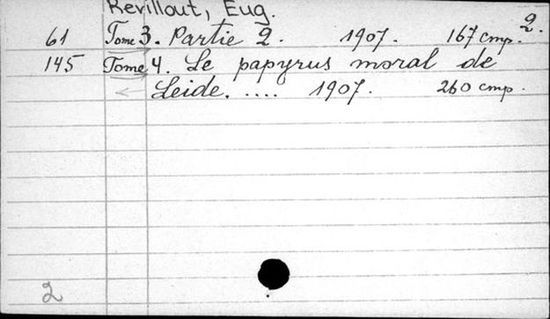 Revillout, Eug.
2.
61 Tome 3. Partie 2. 1907. 167 стр.
145 Tome 4. Le papyrus moral de
Leide. .... 1907. 260 стр.
2